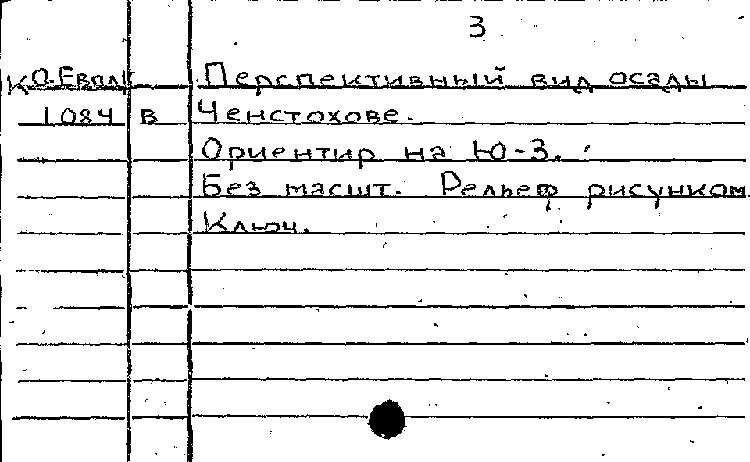 3
К О.Евпл Перспективный вид осады
1084 В Ченстохове.
Ориентир на Ю-З.
Без масшт. Рельеф рисунком
Ключ.